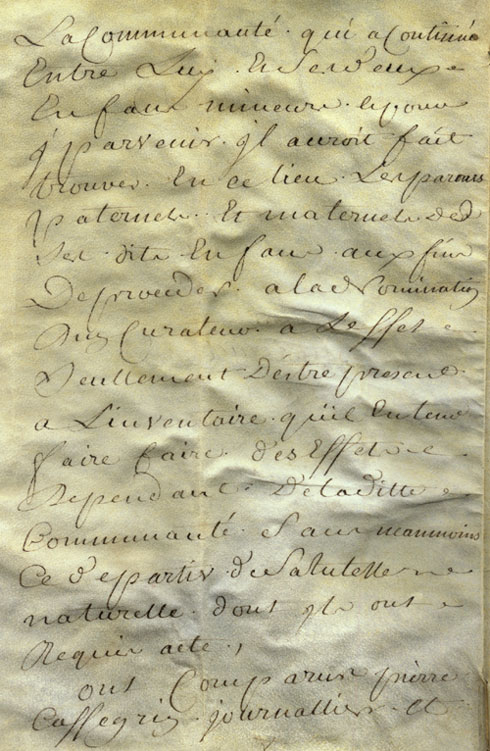 La Communauté qui a Continué
Entre Luy Et Ses deux
Enfans mineurs Et pour
y parvenir Il auroit fait
trouver En ce lieu Les parans
paternels Et maternels de
Ses dits Enfans aux fins
De proceder a la Nomination
d'un Curateur a Leffet
Seullement Destre present
a Linventaire quil Entend
faire faire des Effets
Dependant De laditte
Communauté Sans neanmoins
Se departir de Sa tutelle
naturelle dont Ils ont
Requis acte,
ont Comparus pierre
Cassegrin journallier Et